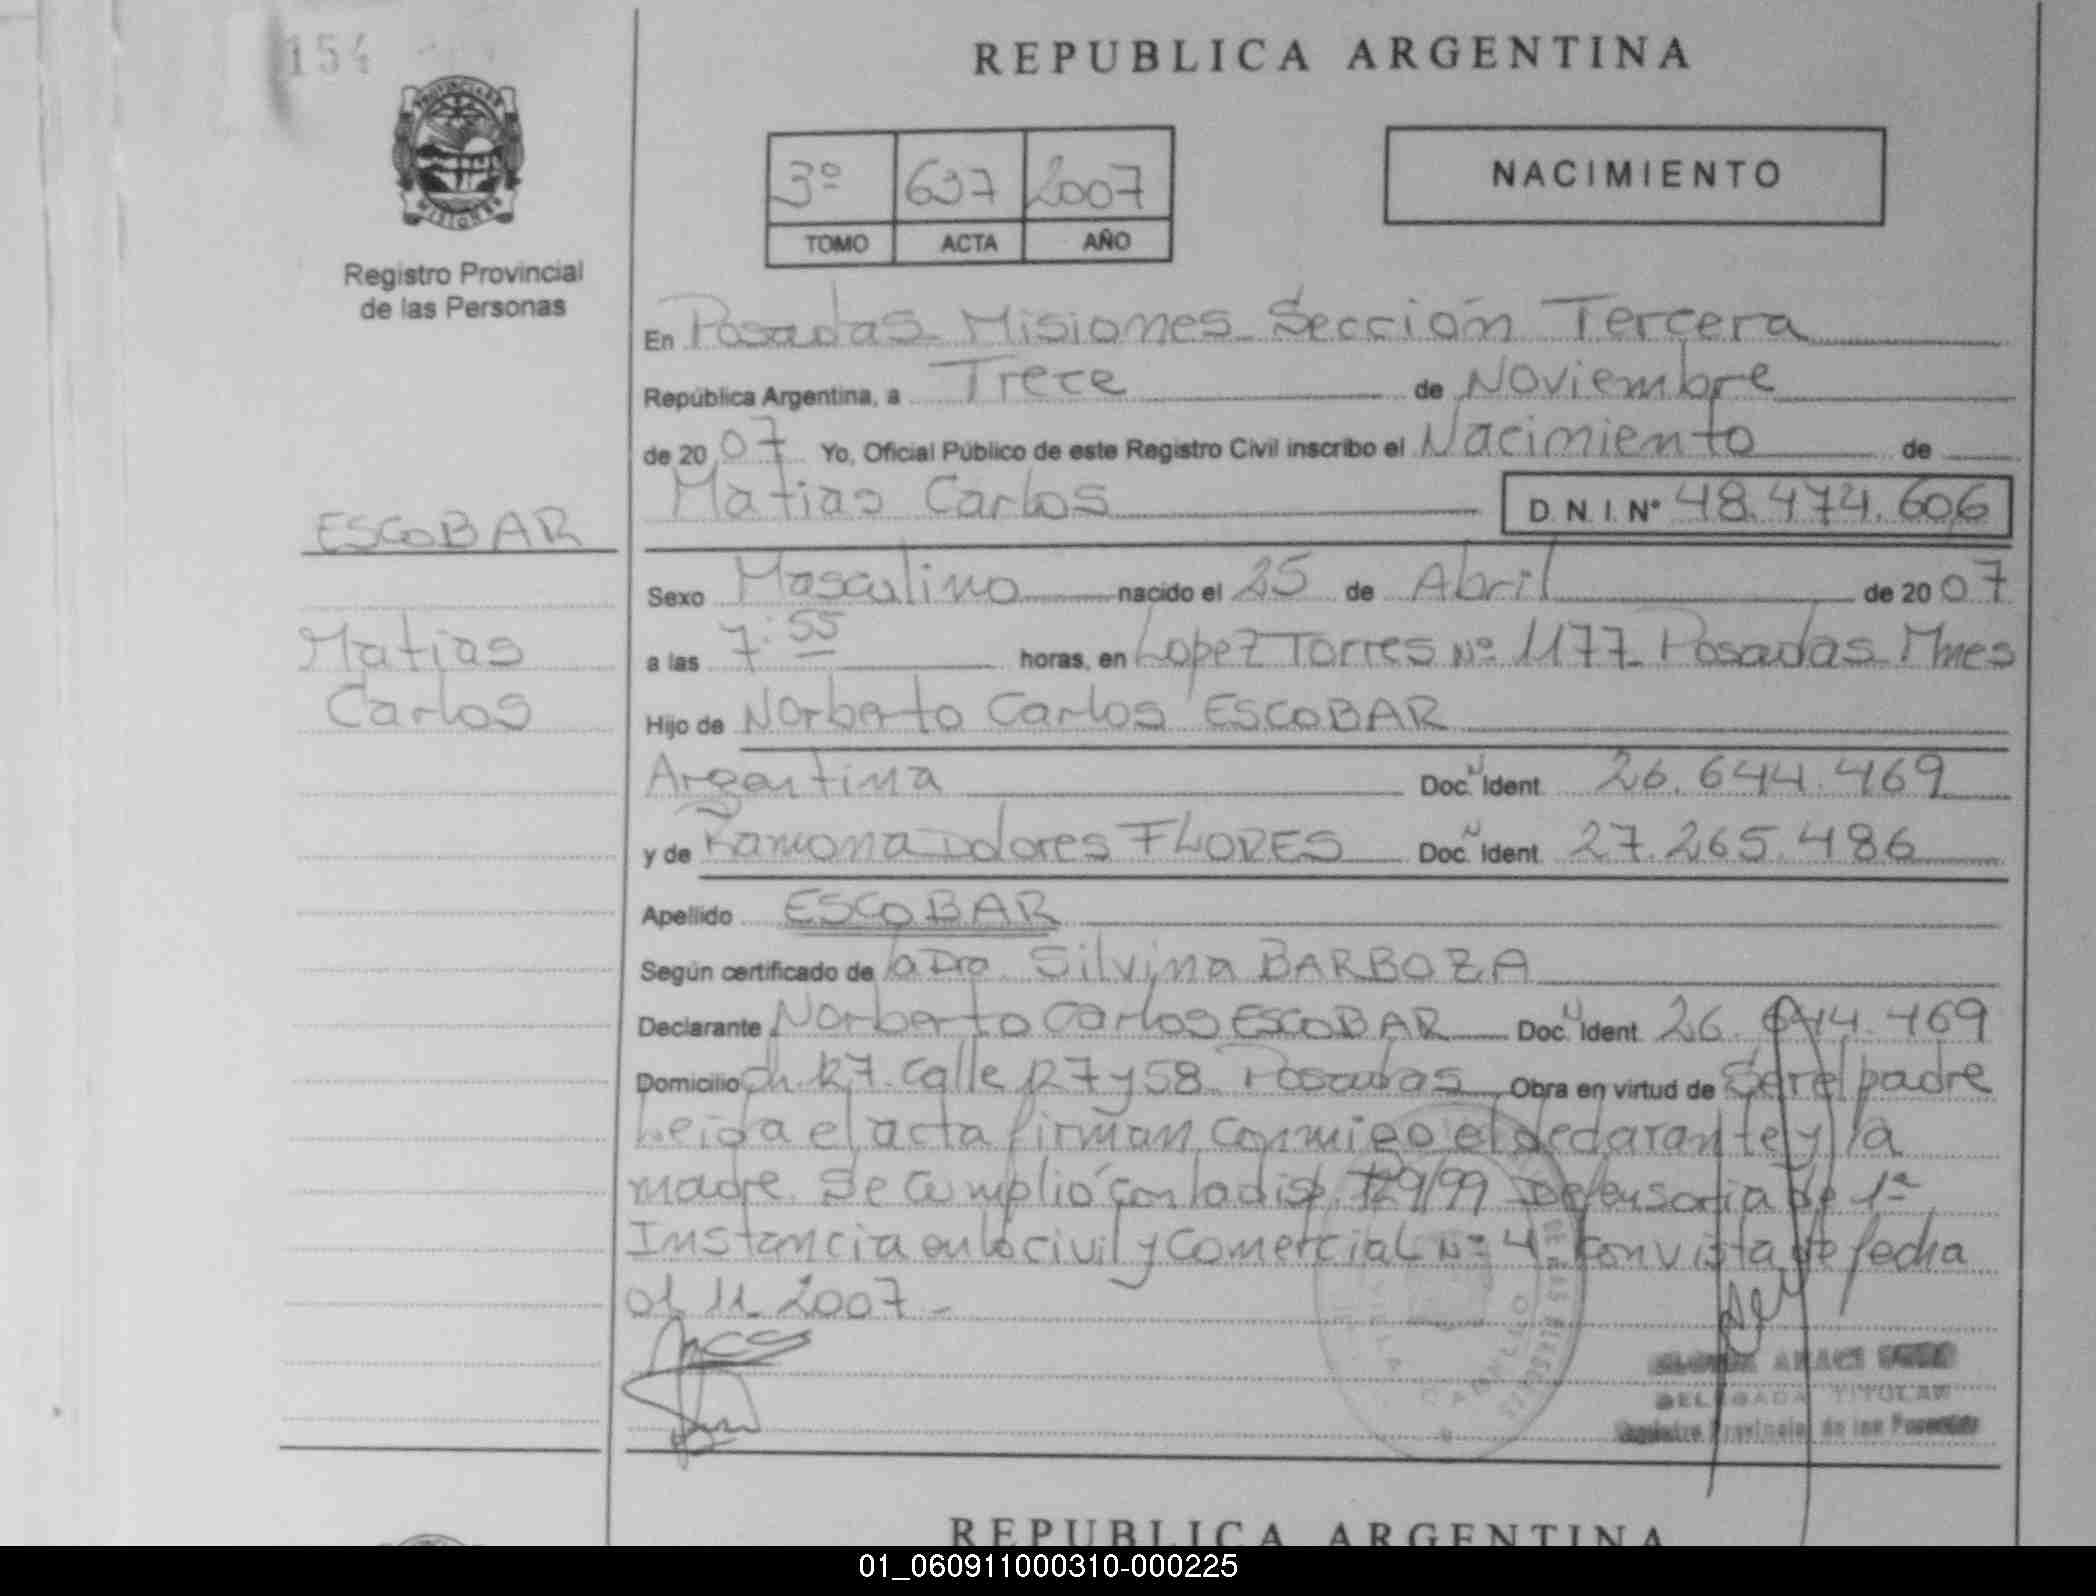 154
REPUBLICA ARGENTINA
PROVINCIA DE
MISIONES
Registro Provincial
de las Personas
3º 637 2007
TOMO ACTA AÑO
NACIMIENTO
En Posadas Misiones Sección Tercera
República Argentina, a Trece de Noviembre
de 20 07 Yo, Oficial Público de este Registro Civil inscribo el Nacimiento de
Matias Carlos D.N.I. Nº 48.474.606
ESCOBAR
Sexo Masculino nacido el 25 de Abril de 20 07
Matias
a las 7:55 horas, en Lopez Torres Nº 1177 Posadas Mnes
Carlos
Hijo de Norberto Carlos ESCOBAR
Argentina Doc. Ident. 26.644.469
y de Ramona Dolores FLORES Doc. Ident. 27.265.486
Apellido ESCOBAR
Según certificado de la Dra. Silvina BARBOZA
Declarante Norberto Carlos ESCOBAR Doc. Ident. 26.644.469
Domicilio ch. 127 calle 127 y 58 Posadas Obra en virtud de Ser el padre
Leida el acta firman conmigo el declarante y la
madre. Se cumplió con la disp. 129/99 Defensoria de 1ª
Instancia en lo civil y Comercial Nº 4 con vista de fecha
01 11 2007 -
DELEGADA TITULAR
Registro Provincial de las Personas
REPUBLICA ARGENTINA
01_060911000310-000225